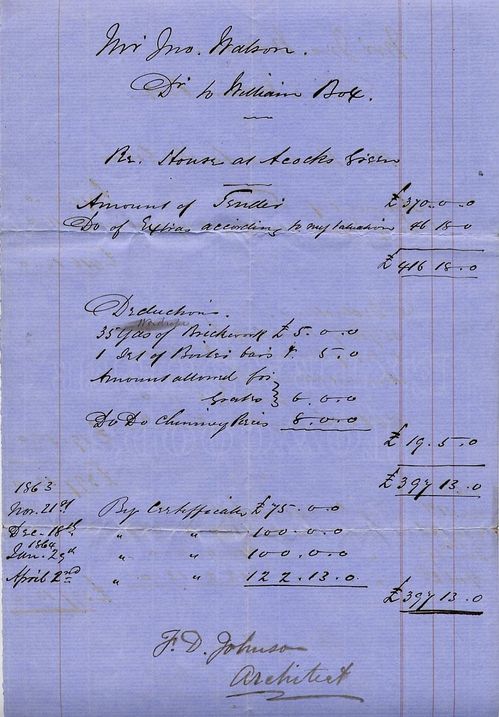 Mr Jno. Watson.
Dr to William Box.
Re. House at Acocks Green
Amount of Tender £370.0.0
Do of Extras according to my valuation 46 18 0
£416 18.0
Deductions.
35 Yds of Brickwork £5.0.0
1 Set of Boiler bars . 5.0
Amount allowed for
Grates } 6.0.0
Do Do Chimney Pieces 8.0.0
£19.5.0
£397 13.0
1863
Nov. 21st By Certificate £75.0.0
Dec. 18th " " 100.0.0
1864
Jan. 29th " " 100.0.0
April 2nd " " 122.13.0
£397 13.0
F. D. Johnson
Architect